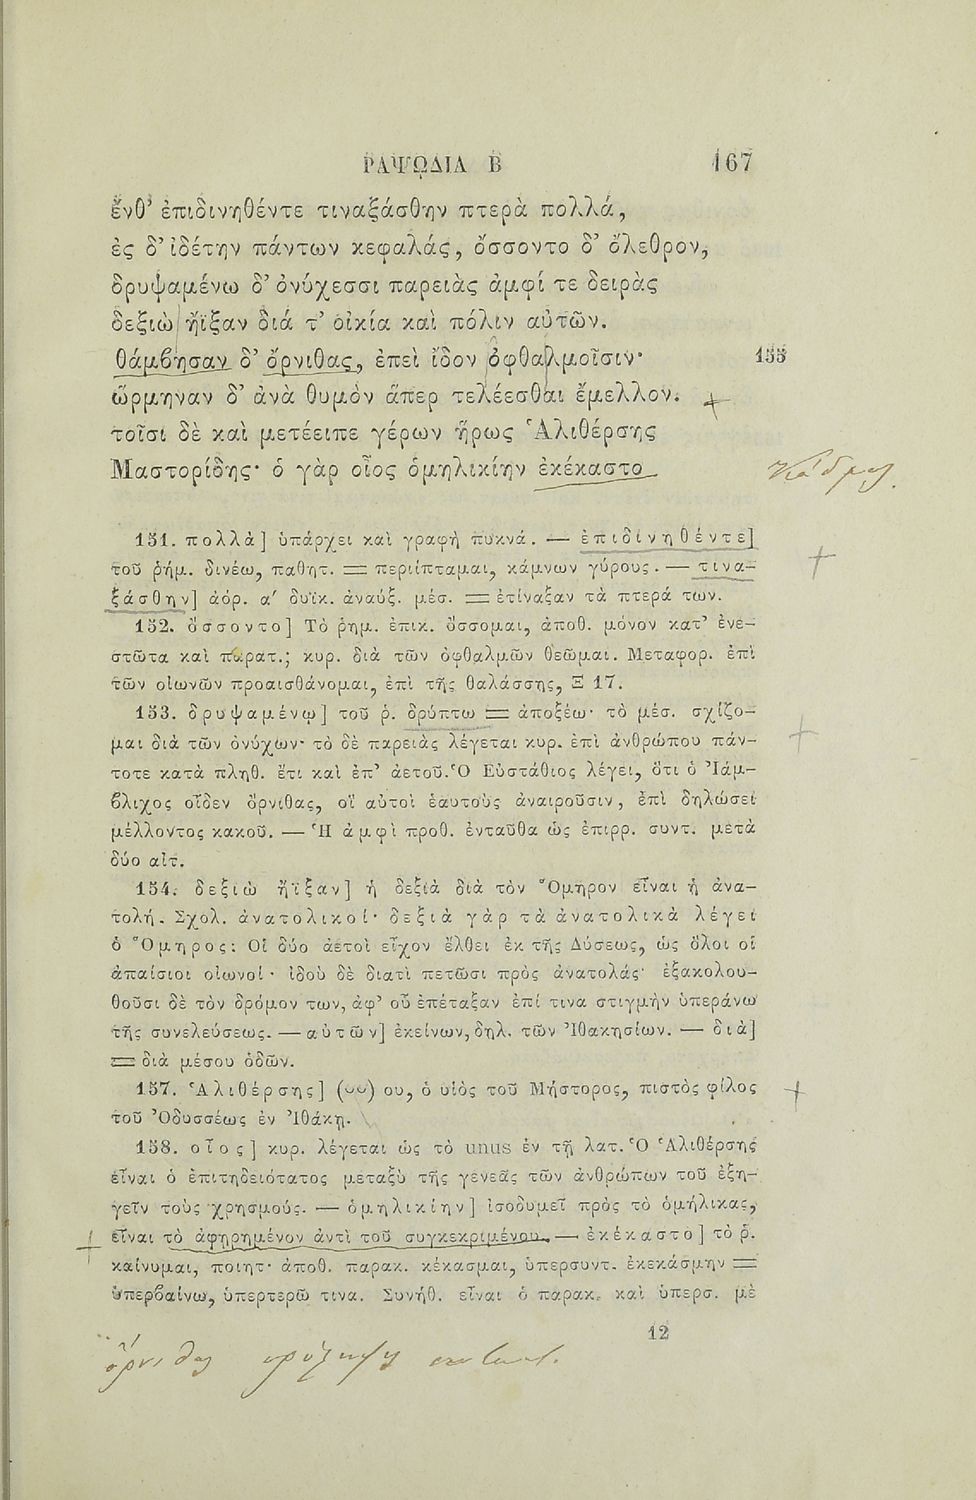 ΡΑΨΩΔΙΑ Β 167
ἔνθ' ἐπιδινηθέντε τιναξάσθην πτερὰ πολλά,
ἐς δ' ἰδέτην πάντων κεφαλάς, ὄσσοντο δ' ὄλεθρον,
δρυψαμένω δ' ὀνύχεσσι παρειὰς ἀμφί τε δειρὰς
δεξιὼ ἤϊξαν διά τ' οἰκία καὶ πόλιν αὐτῶν.
θάμβησαν δ' ὄρνιθας, ἐπεὶ ἴδον ὀφθαλμοῖσιν· 155
ὥρμηναν δ' ἀνὰ θυμὸν ἅπερ τελέεσθαι ἔμελλον.
τοῖσι δὲ καὶ μετέειπε γέρων ἥρως Ἁλιθέρσης
Μαστορίδης· ὁ γὰρ οἶος ὁμηλικίην ἐκέκαστο
151. πολλὰ] ὑπάρχει καὶ γραφὴ πυκνά. — ἐπιδινηθέντε]
τοῦ ῥήμ. δινέω, παθητ. = περιίπταμαι, κάμνων γύρους. — τινα-
ξάσθην] ἀόρ. α' δυϊκ. ἀναύξ. μέσ. = ἐτίναξαν τὰ πτερά των.
152. ὄσσοντο] Τὸ ῥημ. ἐπικ. ὄσσομαι, ἀποθ. μόνον κατ' ἐνε-
στῶτα καὶ παρατ.; κυρ. διὰ τῶν ὀφθαλμῶν θεῶμαι. Μεταφορ. ἐπὶ
τῶν οἰωνῶν προαισθάνομαι, ἐπὶ τῆς θαλάσσης, Ξ 17.
153. δρυψαμένω] τοῦ ῥ. δρύπτω = ἀποξέω· τὸ μέσ. σχίζο-
μαι διὰ τῶν ὀνύχων· τὸ δὲ παρειὰς λέγεται κυρ. ἐπὶ ἀνθρώπου πάν-
τοτε κατὰ πληθ. ἔτι καὶ ἐπ' ἀετοῦ. Ὁ Εὐστάθιος λέγει, ὅτι ὁ Ἰάμ-
βλιχος οἶδεν ὄρνιθας, οἳ αὐτοὶ ἑαυτοὺς ἀναιροῦσιν, ἐπὶ δηλώσει
μέλλοντος κακοῦ. — Ἡ ἀμφὶ προθ. ἐνταῦθα ὡς ἐπιρρ. συντ. μετὰ
δύο αἰτ.
154. δεξιὼ ἤϊξαν] ἡ δεξιὰ διὰ τὸν Ὅμηρον εἶναι ἡ ἀνα-
τολή. Σχολ. ἀνατολικοί· δεξιὰ γὰρ τὰ ἀνατολικὰ λέγει
ὁ Ὅμηρος: Οἱ δύο ἀετοὶ εἶχον ἔλθει ἐκ τῆς Δύσεως, ὡς ὅλοι οἱ
ἀπαίσιοι οἰωνοί· ἰδοὺ δὲ διατὶ πετῶσι πρὸς ἀνατολάς· ἐξακολου-
θοῦσι δὲ τὸν δρόμον των, ἀφ' οὗ ἐπέταξαν ἐπί τινα στιγμὴν ὑπεράνω
τῆς συνελεύσεως. — αὐτῶν] ἐκείνων, δηλ. τῶν Ἰθακησίων. — διὰ]
= διὰ μέσου ὁδῶν.
157. Ἁλιθέρσης] (⏑⏑) ου, ὁ υἱὸς τοῦ Μήστορος, πιστὸς φίλος
τοῦ Ὀδυσσέως ἐν Ἰθάκῃ.
158. οἶος] κυρ. λέγεται ὡς τὸ unus ἐν τῇ λατ. Ὁ Ἁλιθέρσης
εἶναι ὁ ἐπιτηδειότατος μεταξὺ τῆς γενεᾶς τῶν ἀνθρώπων τοῦ ἐξη-
γεῖν τοὺς χρησμούς. — ὁμηλικίην] ἰσοδυμεῖ πρὸς τὸ ὁμήλικας,
εἶναι τὸ ἀφηρημένον ἀντὶ τοῦ συγκεκριμένου. — ἐκέκαστο] τὸ ῥ.
καίνυμαι, ποιητ· ἀποθ. παρακ. κέκασμαι, ὑπερσυντ. ἐκεκάσμην =
ὑπερβαίνω, ὑπερτερῶ τινα. Συνήθ. εἶναι ὁ παρακ. καὶ ὑπερσ. μὲ
12